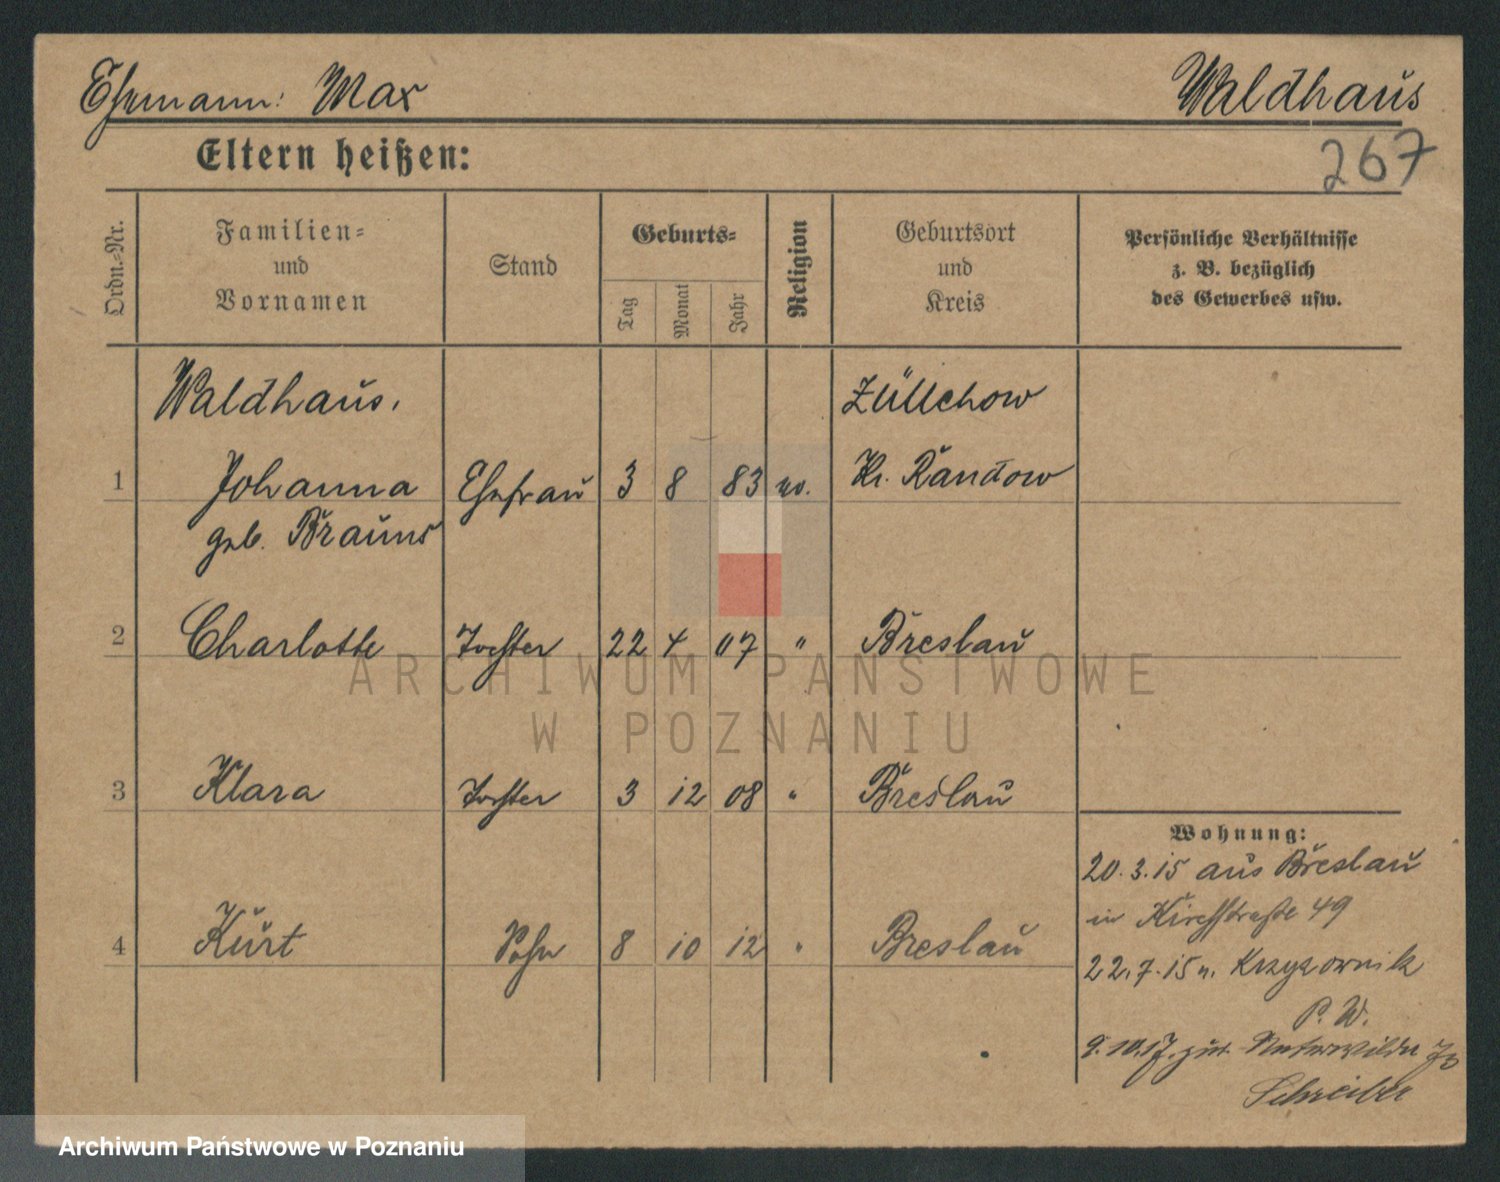 Ehemann: Max Waldhaus
267
Eltern heißen:
Ordn.-Nr.
Familien-
und
Vornamen
Stand
Geburts-
Tag
Monat
Jahr
Religion
Geburtsort
und
Kreis
Persönliche Verhältnisse
z. B. bezüglich
des Gewerbes usw.
Waldhaus. Züllchow
1 Johanna Ehefrau 3 8 83 ev. Kr. Randow
geb. Brauns
2 Charlotte Tochter 22 4 07 " Breslau
3 Klara Tochter 3 12 08 " Breslau
4 Kurt Sohn 8 10 12 " Breslau
Wohnung:
20.3.15 aus Breslau
in Kirchstraße 49
22.7.15 n. Krzyzownik
P. W.
9.10.17. zur
Schreiber
ARCHIWUM PAŃSTWOWE
W POZNANIU
Archiwum Państwowe w Poznaniu